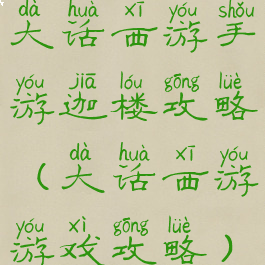 dà huà xī yóu shǒu
大话西游手
yóu jiā lóu gōng lüè
游迦楼攻略
dà huà xī yóu
（大话西游
yóu xì gōng lüè
游戏攻略）